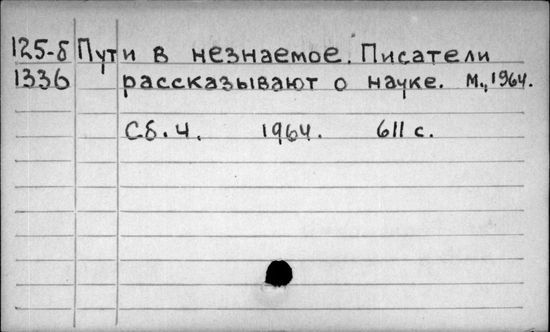 125-б Пути в незнаемое. Писатели
1336 рассказывают о науке. М., 1964.
Сб. 4. 1964. 611 с.